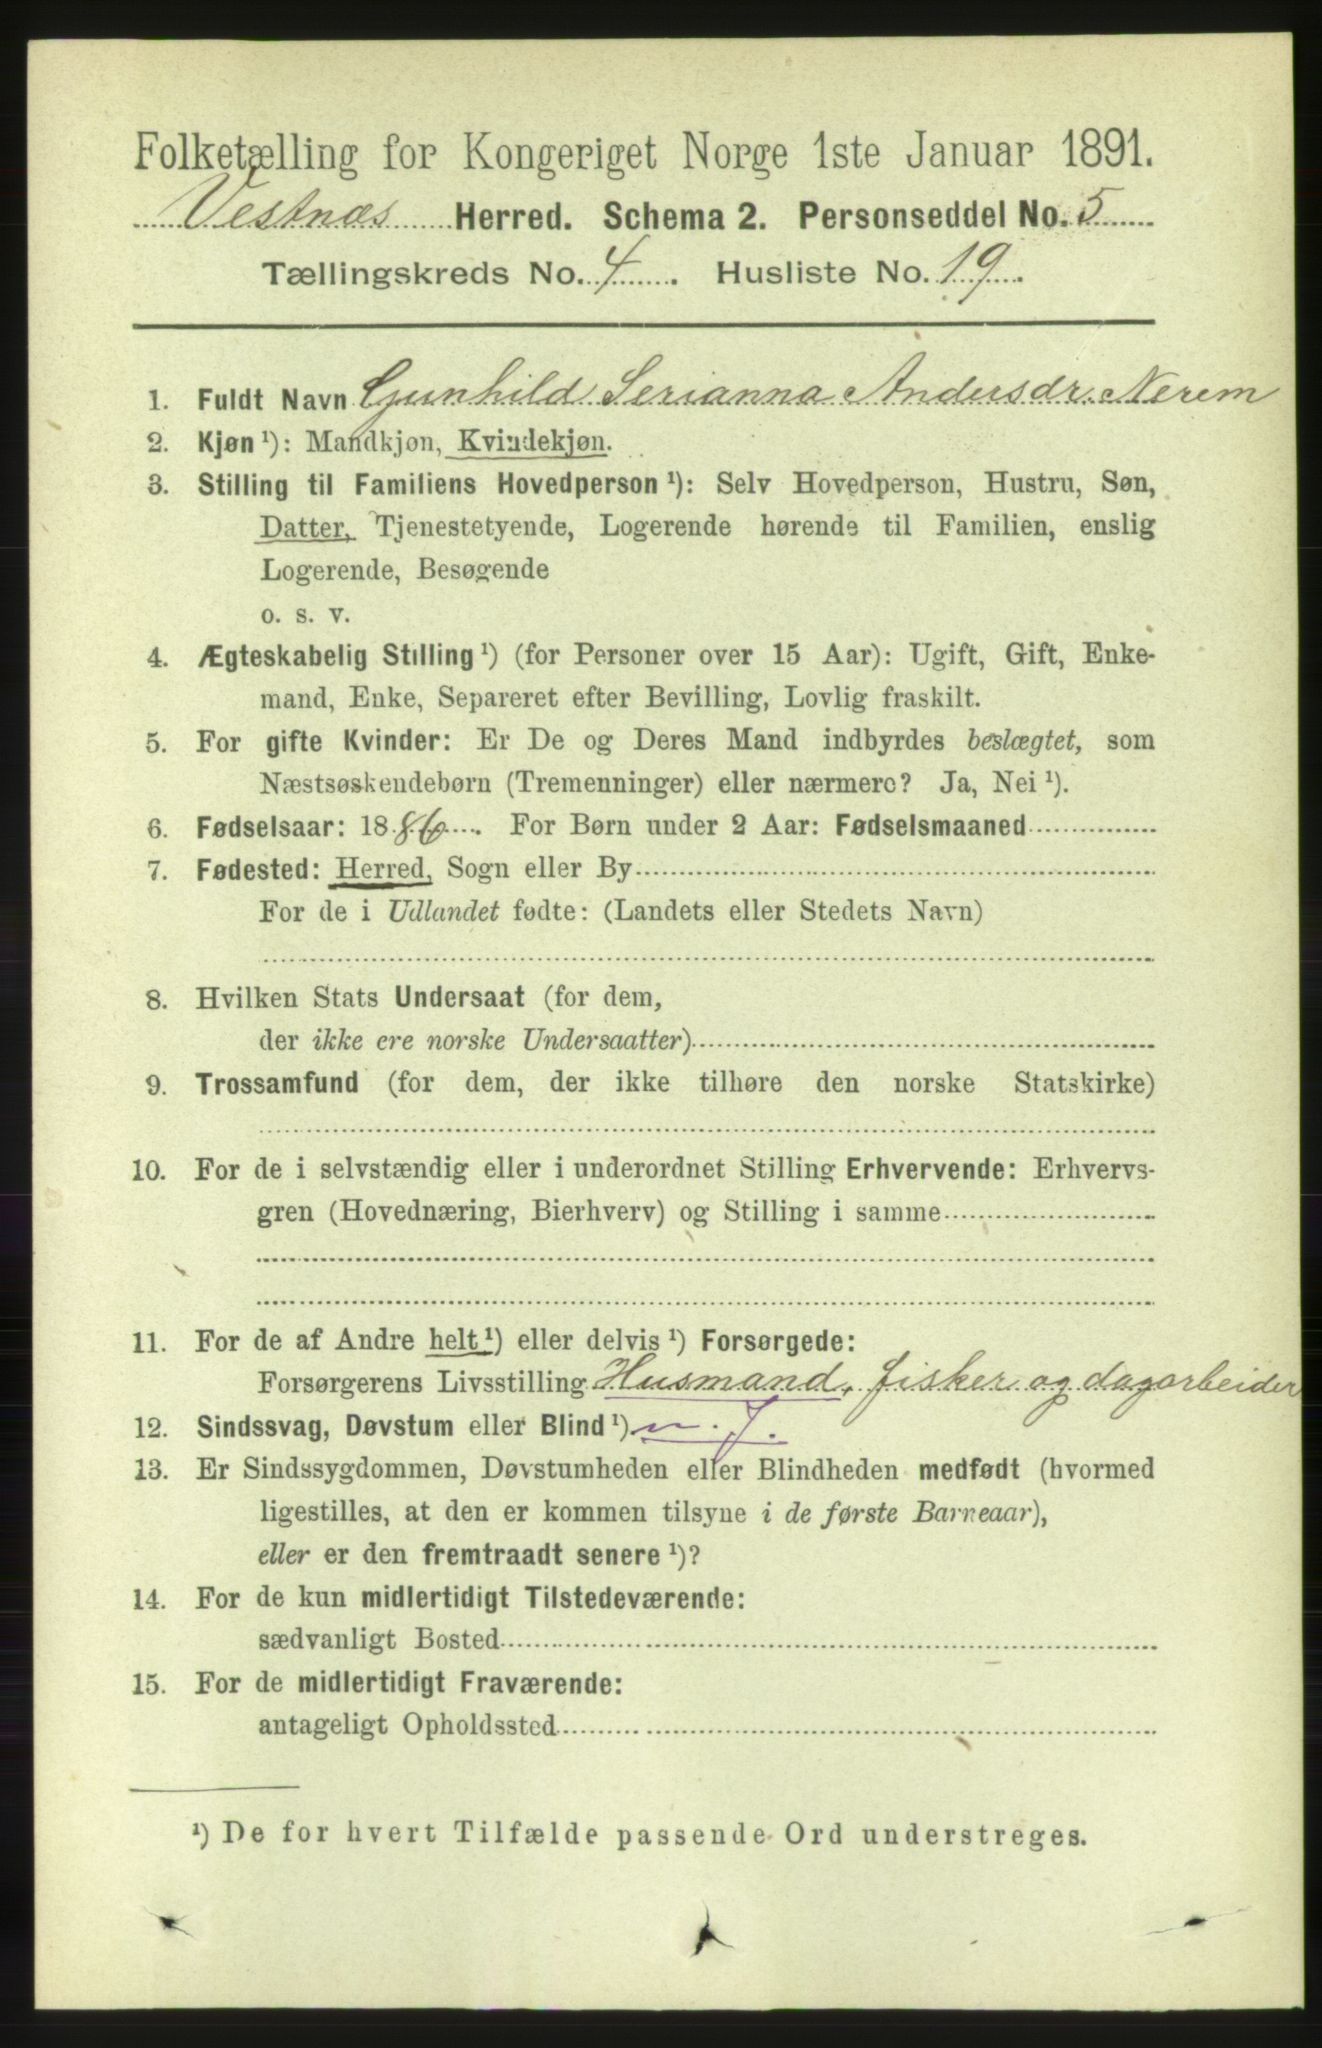 Folketælling for Kongeriget Norge 1ste Januar 1891.
Vestnæs Herred. Schema 2. Personseddel No. 5
Tællingskreds No. 4. Husliste No. 19.
1. Fuldt Navn Gunhild Serianna Andersdr. Nerem
2. Kjøn ¹): Mandkjøn, Kvindekjøn.
3. Stilling til Familiens Hovedperson ¹): Selv Hovedperson, Hustru, Søn,
Datter, Tjenestetyende, Logerende hørende til Familien, enslig
Logerende, Besøgende
o. s. v.
4. Ægteskabelig Stilling ¹) (for Personer over 15 Aar): Ugift, Gift, Enke-
mand, Enke, Separeret efter Bevilling, Lovlig fraskilt.
5. For gifte Kvinder: Er De og Deres Mand indbyrdes beslægtet, som
Næstsøskendebørn (Tremenninger) eller nærmere? Ja, Nei ¹).
6. Fødselsaar: 1886. For Børn under 2 Aar: Fødselsmaaned
7. Fødested: Herred, Sogn eller By
For de i Udlandet fødte: (Landets eller Stedets Navn)
8. Hvilken Stats Undersaat (for dem,
der ikke ere norske Undersaatter)
9. Trossamfund (for dem, der ikke tilhøre den norske Statskirke)
10. For de i selvstændig eller i underordnet Stilling Erhvervende: Erhvervs-
gren (Hovednæring, Bierhverv) og Stilling i samme
11. For de af Andre helt ¹) eller delvis ¹) Forsørgede:
Forsørgerens Livsstilling Husmand, fisker og dagarbeider
12. Sindssvag, Døvstum eller Blind ¹) n. J.
13. Er Sindssygdommen, Døvstumheden eller Blindheden medfødt (hvormed
ligestilles, at den er kommen tilsyne i de første Barneaar),
eller er den fremtraadt senere ¹)?
14. For de kun midlertidigt Tilstedeværende:
sædvanligt Bosted
15. For de midlertidigt Fraværende:
antageligt Opholdssted
¹) De for hvert Tilfælde passende Ord understreges.